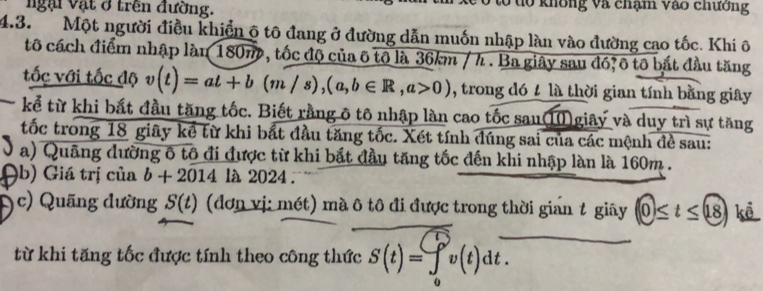 ngại vật ở trên đường.
4.3. Một người điều khiển ô tô đang ở đường dẫn muốn nhập làn vào đường cao tốc. Khi ô
tô cách điểm nhập làn 180m, tốc độ của ô tô là 36km / h. Ba giây sau đó, ô tô bắt đầu tăng
tốc với tốc độ v(t) = at + b (m / s), (a, b ∈ ℝ, a > 0), trong đó t là thời gian tính bằng giây
kể từ khi bắt đầu tăng tốc. Biết rằng ô tô nhập làn cao tốc sau 10 giây và duy trì sự tăng
tốc trong 18 giây kể từ khi bắt đầu tăng tốc. Xét tính đúng sai của các mệnh đề sau:
a) Quãng đường ô tô đi được từ khi bắt đầu tăng tốc đến khi nhập làn là 160m.
b) Giá trị của b + 2014 là 2024.
c) Quãng đường S(t) (đơn vị: mét) mà ô tô đi được trong thời gian t giây (0 ≤ t ≤ 18) kể
từ khi tăng tốc được tính theo công thức S(t) = ∫₀ v(t)dt.